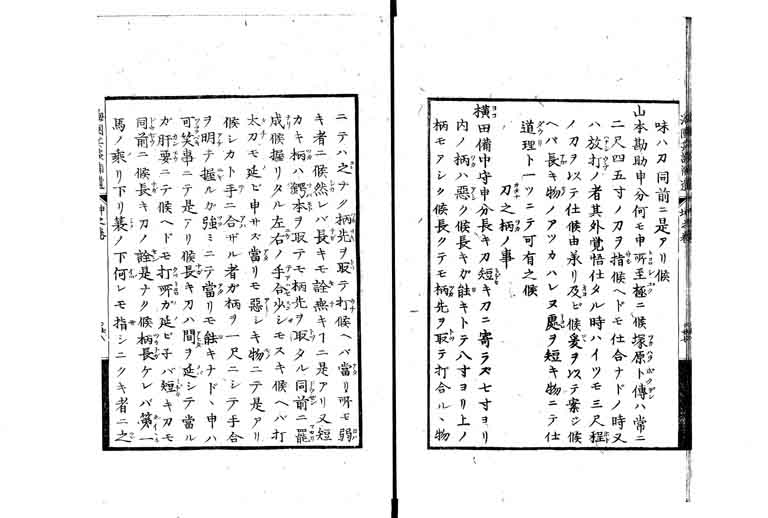 味ハ刀同前ニ是アリ候
山本勘助申分何モ申所至極ニ候塚原卜傳ハ常ニ
二尺四五寸ノ刀ヲ指候ヘドモ仕合ナドノ時又
ハ放打ノ者其外覺悟仕タル時ハイツモ三尺程
ノ刀ヲ以テ仕候由承リ及ビ候爰ヲ以テ案ジ候
ヘバ長キ物ノアツカハレヌ處ヲ短キ物ニテ仕
道理ト一ツニテ可有之候
刀之柄ノ事
横田備中守申分長キ刀短キ刀ニ寄ラズ七寸ヨリ
内ノ柄ハ惡ク候長キガ能キトテ八寸ヨリ上ノ
柄モアシク候長クテモ柄先ヲ取テ打合ルヽ物
ニテハ之ナク柄先ヲ取テ打候ヘバ當リ所モ弱
キ者ニ候然レバ長キモ詮無キヿニ是アリ又短
カキ柄ハ鍔本ヲ取テモ柄先ヲ取タル同前ニ罷
成候握リタル左右ノ手合少シモスキ候ヘバ打
太刀モ延ビ申サズ當リモ惡シキ物ニテ是アリ
候シカト手ニ合ザル者ガ柄ヲ一尺ニシテ手合
ヲ明テ握ルガ強ミニテ當リモ能キナドヽ申ハ
可笑事ニテ是アリ候長キ刀ハ間ヲ延シテ當ル
ガ肝要ニテ候ヘドモ打所ガ延ビ子バ短キ刀モ
同前ニ候長キ刀ノ詮是ナク候柄長ケレバ第一
馬ノ乘リ下リ簑ノ下何レモ指シニクキ者ニ之